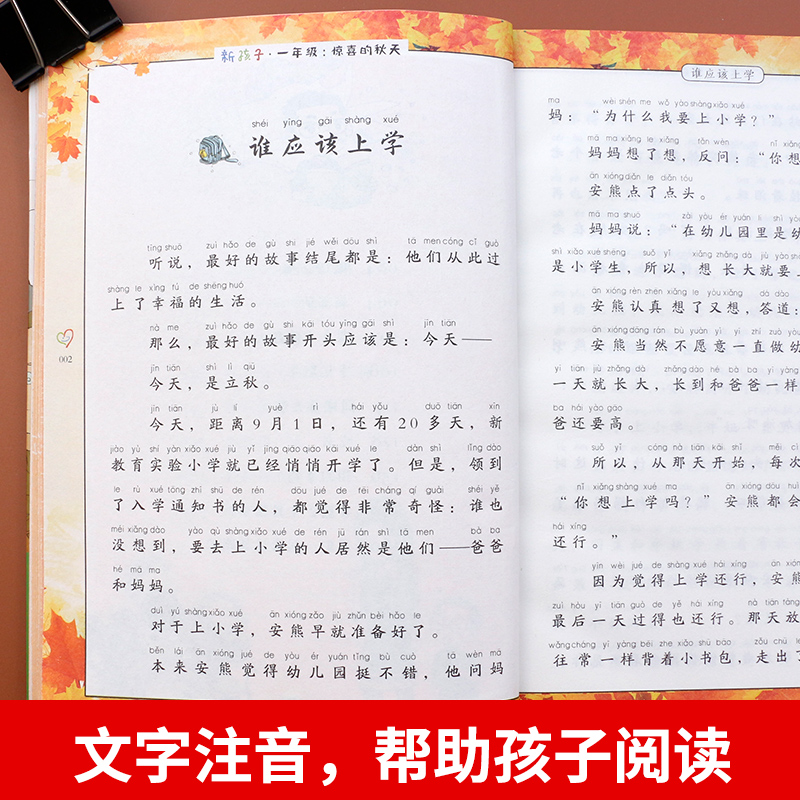 新孩子·一年级：惊喜的秋天
shéi yīng gāi shàng xué
谁应该上学
tīng shuō zuì hǎo de gù shi jié wěi dōu shì tā men cóng cǐ guò
听说，最好的故事结尾都是：他们从此过
shàng le xìng fú de shēng huó
上了幸福的生活。
nà me zuì hǎo de gù shi kāi tóu yīng gāi shì jīn tiān
那么，最好的故事开头应该是：今天——
jīn tiān shì lì qiū
今天，是立秋。
jīn tiān jù lí yuè rì hái yǒu duō tiān xīn
今天，距离9月1日，还有20多天，新
jiào yù shí yàn xiǎo xué jiù yǐ jīng qiāo qiāo kāi xué le dàn shì lǐng dào
教育实验小学就已经悄悄开学了。但是，领到
le rù xué tōng zhī shū de rén dōu jué de fēi cháng qí guài shéi yě
了入学通知书的人，都觉得非常奇怪：谁也
méi xiǎng dào yào qù shàng xiǎo xué de rén jū rán shì tā men bà ba
没想到，要去上小学的人居然是他们——爸爸
hé mā ma
和妈妈。
duì yú shàng xiǎo xué ān xióng zǎo jiù zhǔn bèi hǎo le
对于上小学，安熊早就准备好了。
běn lái ān xióng jué de yòu ér yuán tǐng bú cuò tā wèn mā
本来安熊觉得幼儿园挺不错，他问妈
002
谁应该上学
ma wèi shén me wǒ yào shàng xiǎo xué
妈：“为什么我要上小学？”
mā ma xiǎng le xiǎng fǎn wèn nǐ xiǎng
妈妈想了想，反问：“你想
ān xióng diǎn le diǎn tóu
安熊点了点头。
mā ma shuō zài yòu ér yuán lǐ shì yòu
妈妈说：“在幼儿园里是幼
shì xiǎo xué shēng suǒ yǐ xiǎng zhǎng dà jiù yào shàng
是小学生，所以，想长大就要上
ān xióng rèn zhēn xiǎng le yòu xiǎng dá dào
安熊认真想了又想，答道：
ān xióng dāng rán bú yuàn yì yì zhí zuò yòu
安熊当然不愿意一直做幼
yì tiān jiù zhǎng dà zhǎng dào hé bà ba yí yàng
一天就长大，长到和爸爸一样
ba hái yào gāo
爸还要高。
suǒ yǐ cóng nà tiān kāi shǐ měi cì
所以，从那天开始，每次
nǐ xiǎng shàng xué ma ān xióng dōu huì
“你想上学吗？”安熊都会
hái xíng
还行。”
yīn wèi jué de shàng xué hái xíng ān xióng
因为觉得上学还行，安熊
zuì hòu yì tiān guò de yě hái xíng nà tiān fàng
最后一天过得也还行。那天放
wǎng cháng yí yàng bēi zhe xiǎo shū bāo zǒu chū le
往常一样背着小书包，走出了
文字注音，帮助孩子阅读